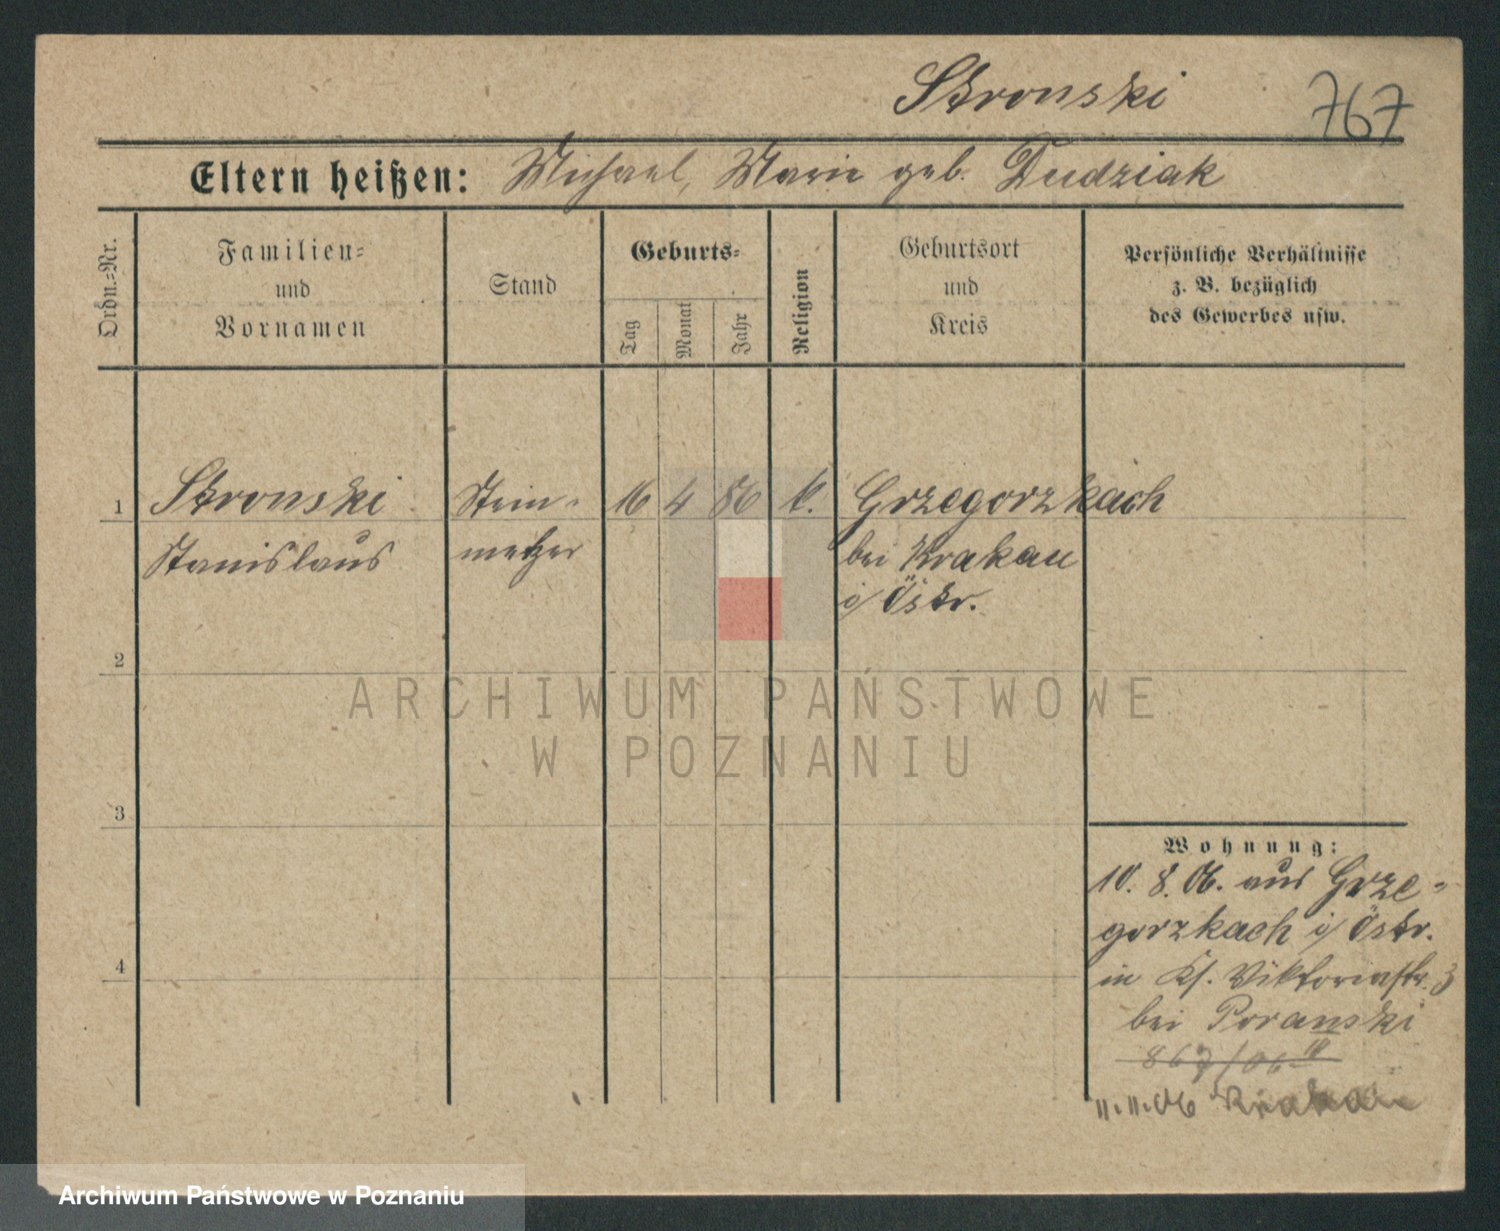 Skronski 767
Eltern heißen: Michael, Marie geb. Dudziak
Ordn.-Nr.
Familien-
und
Vornamen
Stand
Geburts-
Tag
Monat
Jahr
Religion
Geburtsort
und
Kreis
Persönliche Verhältnisse
z. B. bezüglich
des Gewerbes usw.
1 Skronski Stein- 16 4 86 k. Grzegorzkach
Stanislaus metzer bei Krakau
i/ Östr.
2
ARCHIWUM PAŃSTWOWE
W POZNANIU
3
Wohnung:
10. 8. 06. aus Grze-
gorzkach i/ Östr.
4
in Viktoriastr. 3
bei Poranski
867/06
11.11.06 Krakau
Archiwum Państwowe w Poznaniu